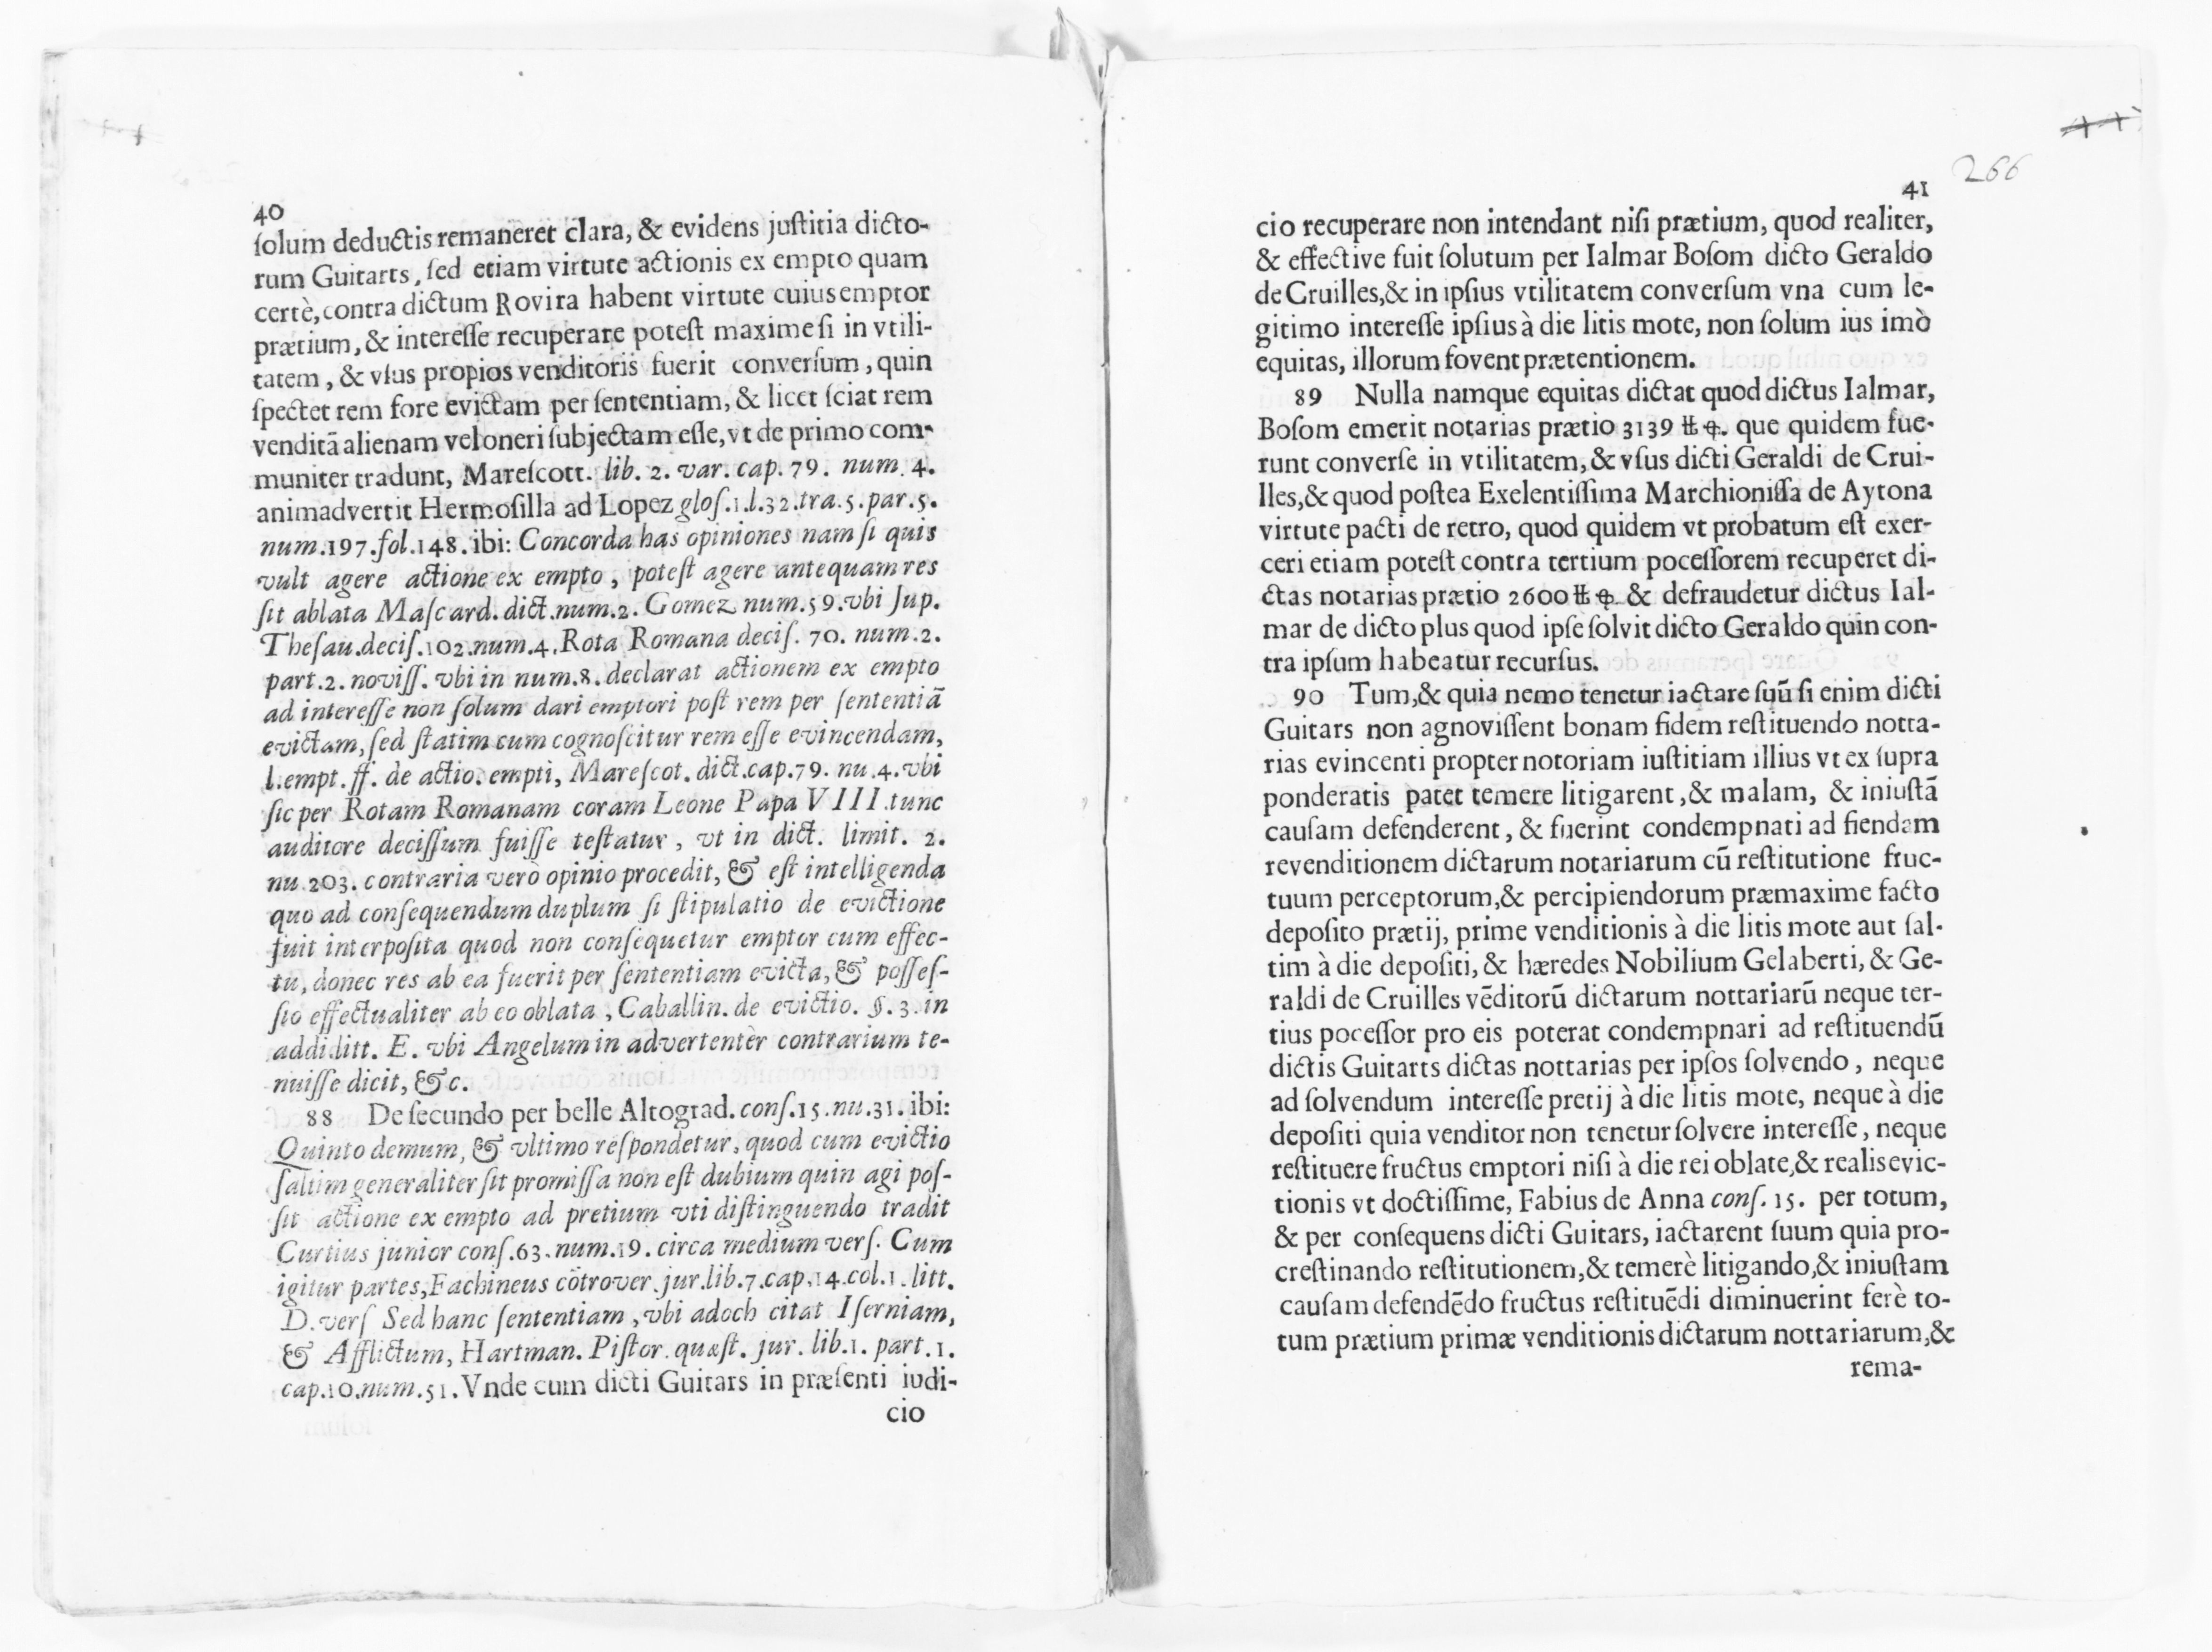 40
ſolum deductis remaneret clara, & evidens juſtitia dicto-
rum Guitarts, ſed etiam virtute actionis ex empto quam
certè, contra dictum Rovira habent virtute cuius emptor
prætium, & intereſſe recuperare poteſt maxime ſi in vtili-
tatem, & vſus propios venditoris fuerit converſum, quin
ſpectet rem fore evictam per ſententiam, & licet ſciat rem
venditā alienam vel oneri ſubjectam eſſe, vt de primo com-
muniter tradunt, Mareſcott. lib. 2. var. cap. 79. num. 4.
animadvertit Hermoſilla ad Lopez gloſ.1.l.32.tra.5.par.5.
num.197.fol.148. ibi: Concorda has opiniones nam ſi quis
vult agere actione ex empto, poteſt agere antequam res
ſit ablata Maſcard. dict.num.2. Gomez num.59.vbi ſup.
Theſau.deciſ.102.num.4. Rota Romana deciſ. 70. num.2.
part.2. noviſſ. vbi in num.8. declarat actionem ex empto
ad intereſſe non ſolum dari emptori poſt rem per ſententiā
evictam, ſed ſtatim cum cognoſcitur rem eſſe evincendam,
l.empt.ff. de actio. empti, Mareſcot. dict.cap.79. nu.4.vbi
ſic per Rotam Romanam coram Leone Papa VIII.tunc
auditore deciſſum fuiſſe teſtatur, vt in dict. limit. 2.
nu.203. contraria verò opinio procedit, & eſt intelligenda
quo ad conſequendum duplum ſi ſtipulatio de evictione
fuit interpoſita quod non conſequetur emptor cum effec-
tu, donec res ab ea fuerit per ſententiam evicta, & poſſeſ-
ſio effectualiter ab eo oblata, Caballin. de evictio. §. 3. in
addi.litt. E. vbi Angelum in advertentèr contrarium te-
nuiſſe dicit, &c.
88 De ſecundo per belle Altograd. conſ.15.nu.31. ibi:
Quinto demum, & vltimo reſpondetur, quod cum evictio
ſaltim generaliter ſit promiſſa non eſt dubium quin agi poſ-
ſit actione ex empto ad pretium vti diſtinguendo tradit
Curtius junior conſ.63.num.19. circa medium verſ. Cum
igitur partes, Fachineus cōtrover.jur.lib.7.cap.14.col.1.litt.
D.verſ Sed hanc ſententiam, vbi adoch citat Iſerniam,
& Afflictum, Hartman. Piſtor. quæſt. jur. lib.1. part.1.
cap.10.num.51. Vnde cum dicti Guitars in præſenti iudi-
cio
41
266
cio recuperare non intendant niſi prætium, quod realiter,
& effective fuit ſolutum per Ialmar Boſom dicto Geraldo
de Cruilles, & in ipſius vtilitatem converſum vna cum le-
gitimo intereſſe ipſius à die litis mote, non ſolum ius imò
equitas, illorum fovent prætentionem.
89 Nulla namque equitas dictat quod dictus Ialmar,
Boſom emerit notarias prætio 3139 que quidem fue-
runt converſe in vtilitatem, & vſus dicti Geraldi de Crui-
lles, & quod poſtea Exelentiſſima Marchioniſſa de Aytona
virtute pacti de retro, quod quidem vt probatum eſt exer-
ceri etiam poteſt contra tertium poceſſorem recuperet di-
ctas notarias prætio 2600 & defraudetur dictus Ial-
mar de dicto plus quod ipſe ſolvit dicto Geraldo quin con-
tra ipſum habeatur recurſus.
90 Tum, & quia nemo tenetur iactare ſuū ſi enim dicti
Guitars non agnoviſſent bonam fidem reſtituendo notta-
rias evincenti propter notoriam iuſtitiam illius vt ex ſupra
ponderatis patet temere litigarent, & malam, & iniuſtā
cauſam defenderent, & fuerint condempnati ad fiendam
revenditionem dictarum notariarum cū reſtitutione fruc-
tuum perceptorum, & percipiendorum præmaxime facto
depoſito prætij, prime venditionis à die litis mote aut ſal-
tim à die depoſiti, & hæredes Nobilium Gelaberti, & Ge-
raldi de Cruilles vēditorū dictarum nottariarū neque ter-
tius poceſſor pro eis poterat condempnari ad reſtituendū
dictis Guitarts dictas nottarias per ipſos ſolvendo, neque
ad ſolvendum intereſſe pretij à die litis mote, neque à die
depoſiti quia venditor non tenetur ſolvere intereſſe, neque
reſtituere fructus emptori niſi à die rei oblate, & realis evic-
tionis vt doctiſſime, Fabius de Anna conſ. 15. per totum,
& per conſequens dicti Guitars, iactarent ſuum quia pro-
creſtinando reſtitutionem, & temerè litigando, & iniuſtam
cauſam defendēdo fructus reſtituēdi diminuerint ferè to-
tum prætium primæ venditionis dictarum nottariarum, &
rema-